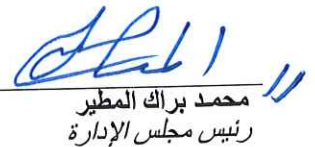 محمد براك المطير
رئيس مجلس الإدارة